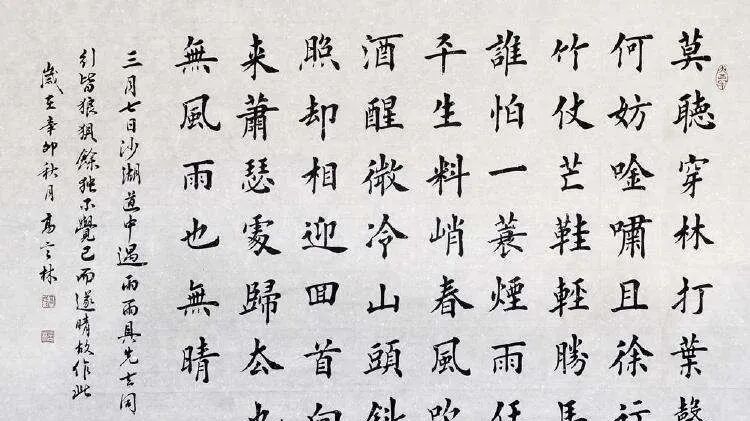 莫聽穿林打葉聲
何妨唫嘯且徐行
竹仗芒鞵輕勝馬
誰怕一蓑煙雨任
平生料峭春風吹
酒醒微冷山頭斜
照却相迎囬首向
来蕭瑟處歸去也
無風雨也無晴
三月七日沙湖道中遇雨雨具先去同
引皆狼狽餘獨不覺已而遂晴故作此
歲在辛卯秋月高林